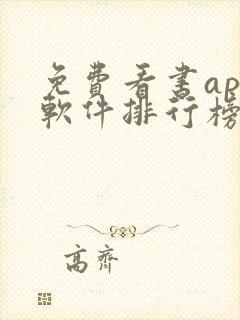 免費看書ap
軟件排行榜
高齊